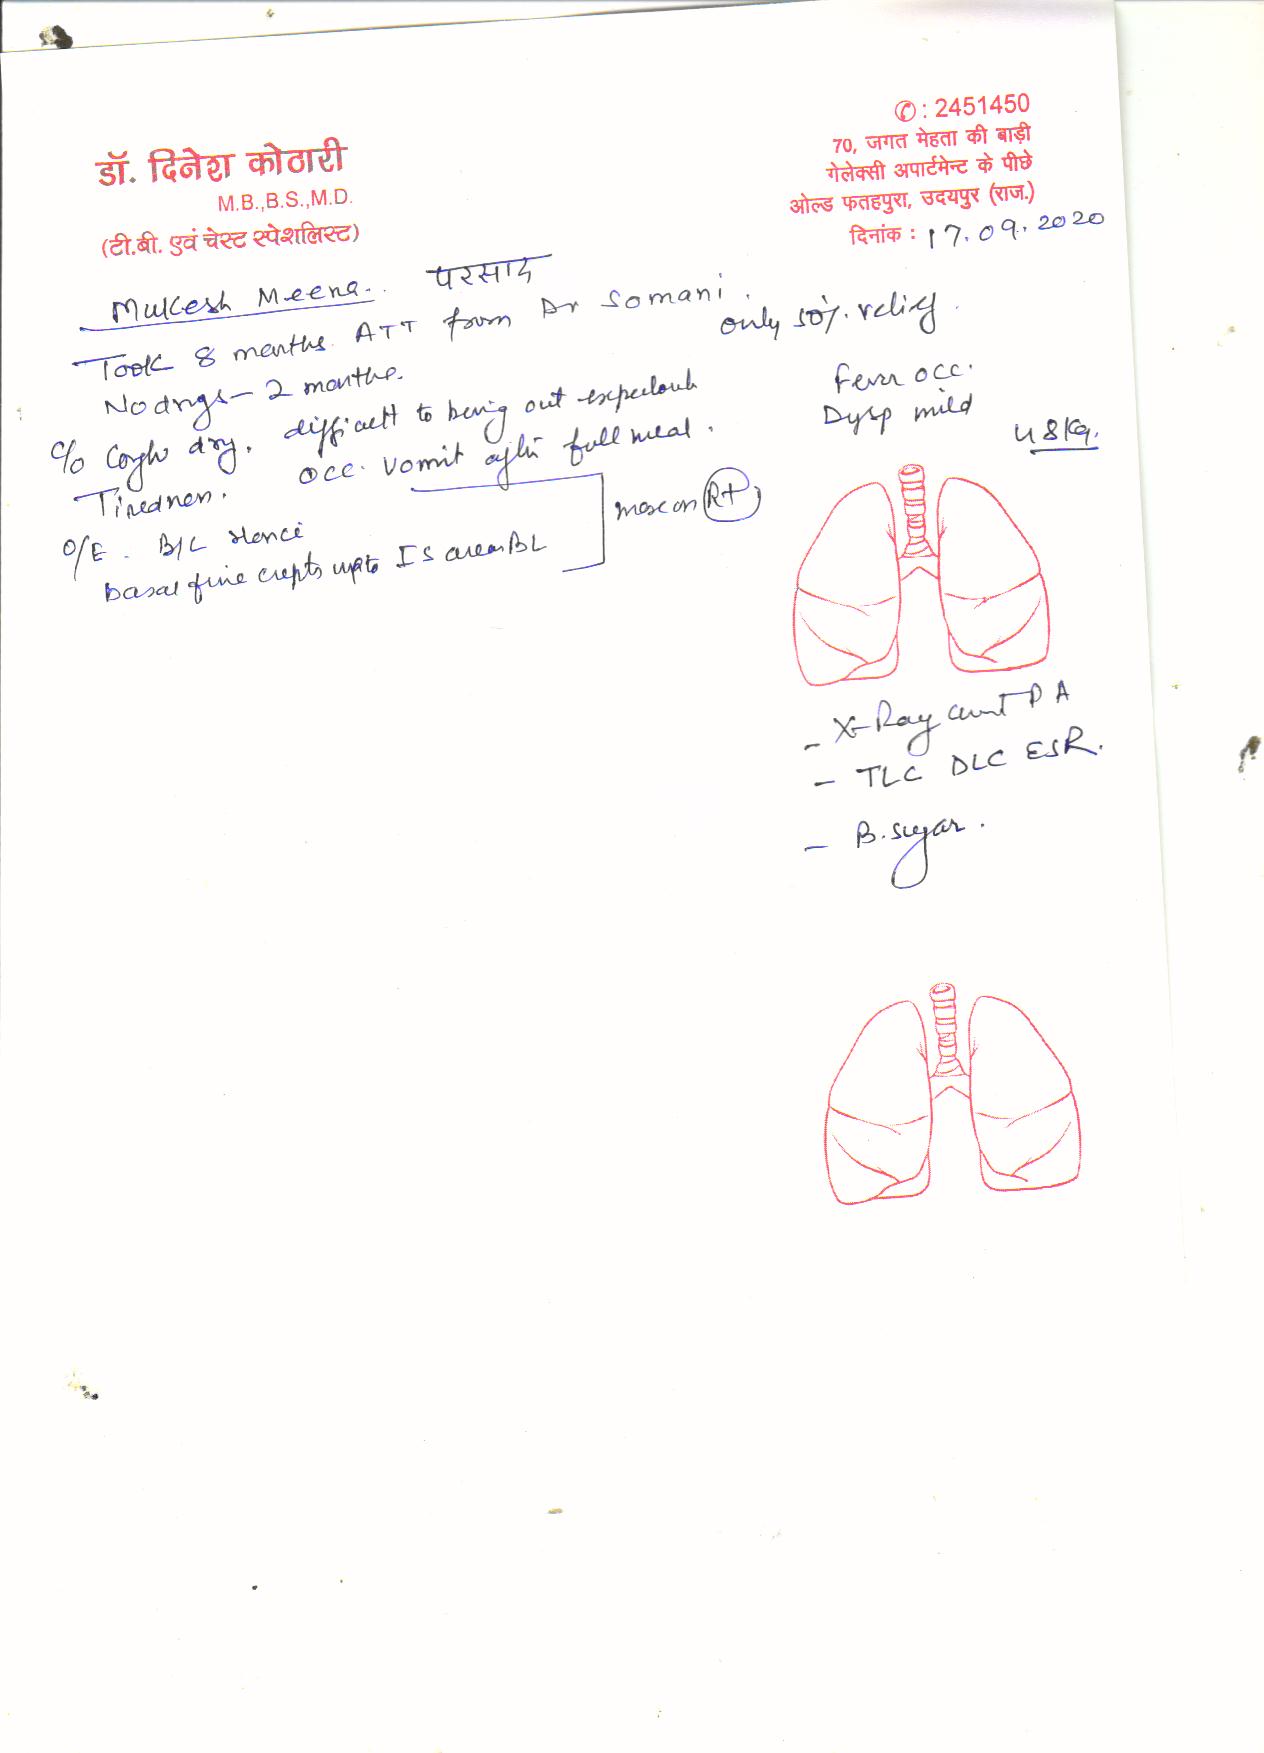 ✆: 2451450
70, जगत मेहता की बाड़ी
गेलेक्सी अपार्टमेन्ट के पीछे
ओल्ड फतहपुरा, उदयपुर (राज.)
दिनांक : 17.09.2020
डॉ. दिनेश कोठारी
M.B.,B.S.,M.D.
(टी.बी. एवं चेस्ट स्पेशलिस्ट)
Mukesh Meena.. परसाद
Took 8 months ATT from Dr Somani. only 50% relief.
No drugs - 2 months.
Fever occ.
C/o Cough dry. difficult to bring out
Dysp mild
occ. vomit after full meal.
48 Kg.
Tiredness.
O/E. B/L
more on Rt
basal fine crepts upto IS area BL
- X-Ray chest PA
- TLC DLC ESR.
- B. sugar.